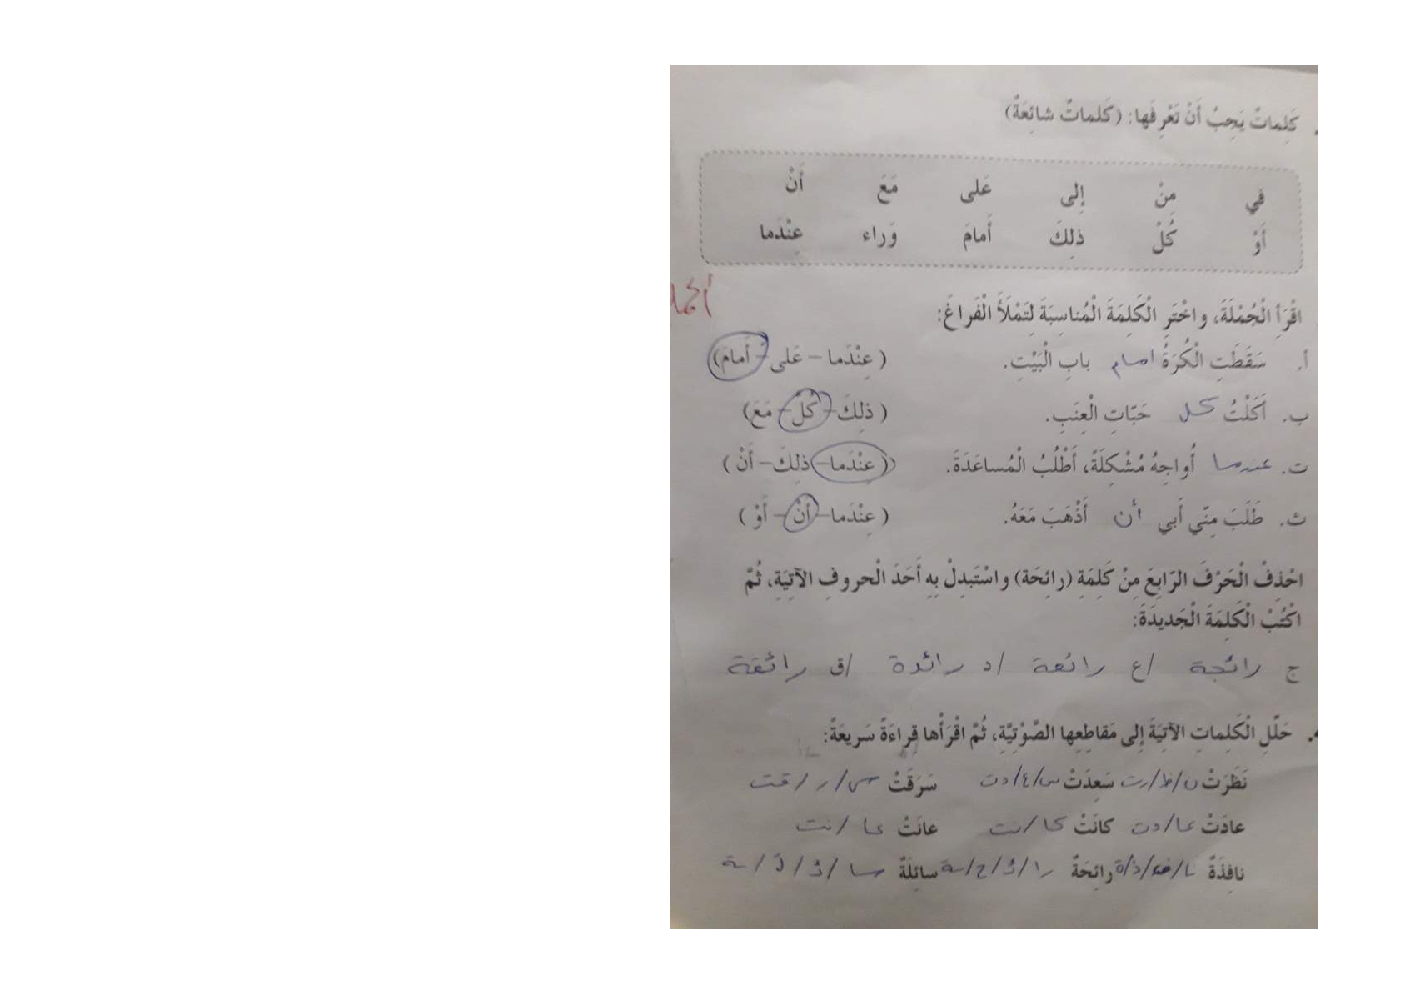 كَلِماتٌ يَجِبُ أَنْ تَعْرِفَها: (كَلماتٌ شائِعَةٌ)
في مِنْ إِلى عَلى مَعَ أَنْ
أَوْ كُلّ ذلِكَ أَمامَ وَراء عِنْدَما
اقْرَأِ الْجُمْلَةَ، واخْتَرِ الْكَلِمَةَ الْمُناسِبَةَ لِتَمْلَأَ الْفَراغَ:
أ. سَقَطَتِ الْكُرَةُ امام بابِ الْبَيْتِ. ( عِنْدَما – عَلى – أَمامَ)
ب. أَكَلْتُ كل حَبّاتِ الْعِنَبِ. ( ذلِكَ – كُلّ – مَعَ)
ت. عندما أُواجِهُ مُشْكِلَةً، أَطْلُبُ الْمُساعَدَةَ. ( عِنْدَما – ذلِكَ – أَنْ )
ث. طَلَبَ مِنّي أَبي أن أَذْهَبَ مَعَهُ. ( عِنْدَما – أَنْ – أَوْ )
احْذِفُ الْحَرْفَ الرّابِعَ مِنْ كَلِمَةِ (رائِحَة) واسْتَبدِلْ بِهِ أَحَدَ الْحروفِ الآتِيَةِ، ثُمَّ
اكْتُبْ الْكَلِمَةَ الْجَديدَةَ:
ج رائجة /ع رائعة /د رائدة /ق رائقة
حَلِّلِ الْكَلِماتِ الآتِيَةَ إِلى مَقاطِعِها الصَّوْتِيَّةِ، ثُمَّ اقْرَأْها قِراءَةً سَريعَةً:
نَظَرَتْ ن/ظ/رت سَعِدَتْ س/ع/دت سَرَقَتْ س/ر/قت
عادَتْ عا/دت كانَتْ كا/نت عانَتْ عا/نت
نافِذَةٌ نا/ف/ذ/ة رائِحَةٌ را/ئ/ح/ة سائِلَةٌ سا/ئ/ل/ة